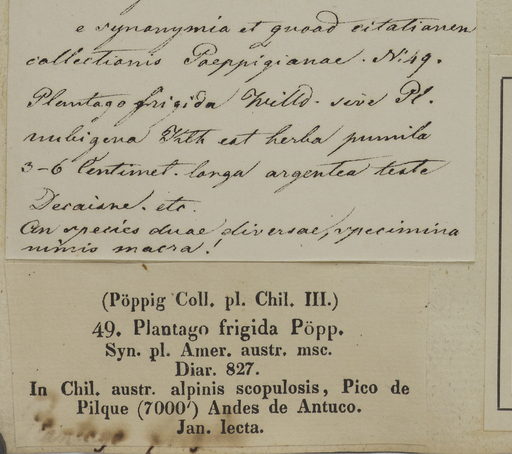 e synonymia et quoad citationem
collectionis Poeppigianae. N: 49.
Plantago frigida Willd. sive Pl.
nubigena Kth est herba pumila
3-6 Centimet. longa argentea teste
Decaisne. etc.
An species duae diversae, specimina
nimis macra!
(Pöppig Coll. pl. Chil. III.)
49. Plantago frigida Pöpp.
Syn. pl. Amer. austr. msc.
Diar. 827.
In Chil. austr. alpinis scopulosis, Pico de
Pilque (7000') Andes de Antuco.
Jan. lecta.